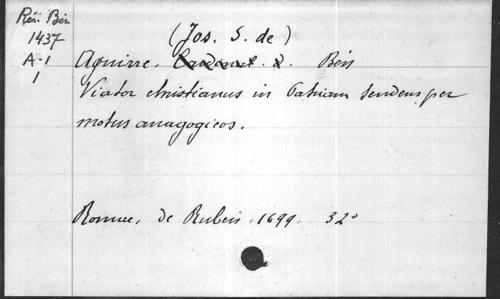 Rés. Bén
1437
A-1
1
(Jos. S. de)
Aguirre. Bén
Viator christianus in Patriam tendens per
motus anagogicos.
Romae, de Rubeis. 1699. 32°